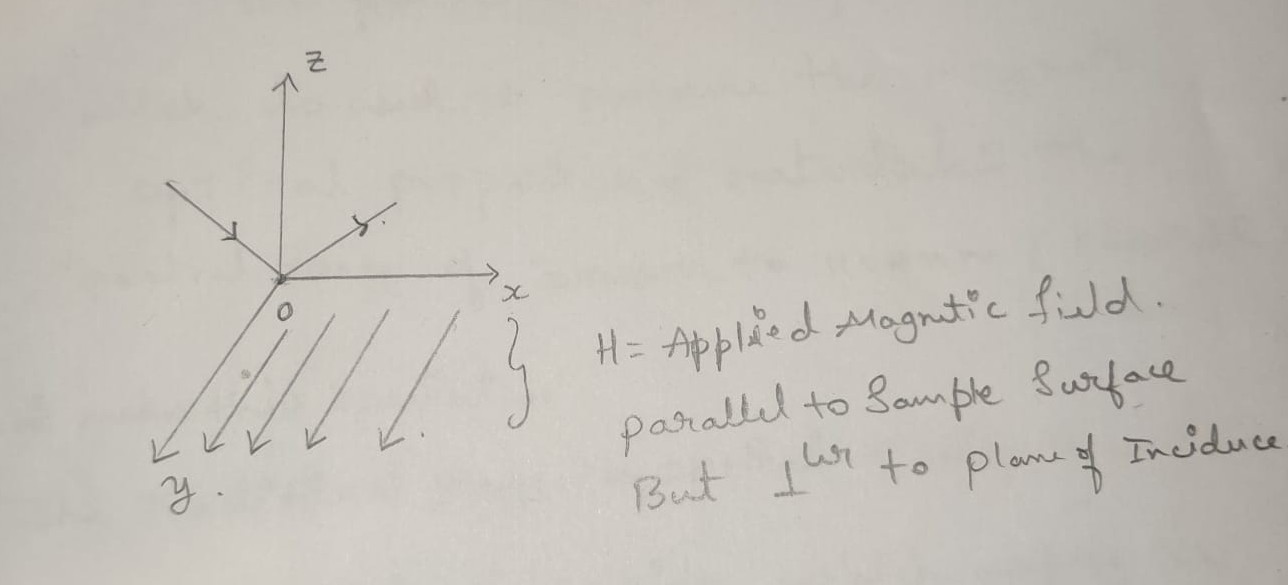 z
x
O
y.
H = Applied Magnetic field.
parallel to Sample Surface
But ⊥ler to plane of Inciduce